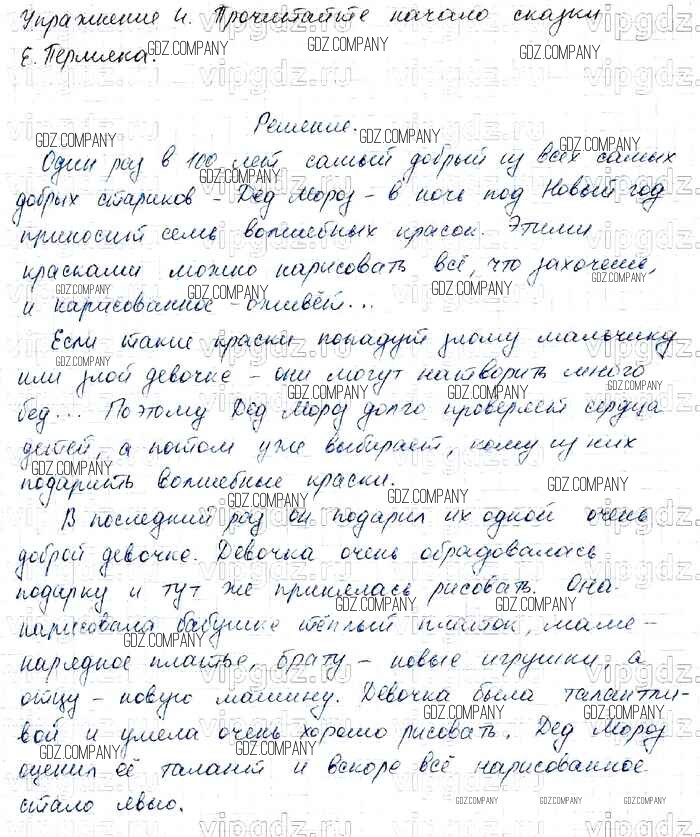 Упражнение 4. Прочитайте начало сказки
Е. Пермяка.
Решение.
Один раз в 100 лет самый добрый из всех самых
добрых стариков – Дед Мороз – в ночь под Новый год
приносит семь волшебных красок. Этими
красками можно нарисовать всё, что захочешь,
и нарисованное – оживёт...
Если такие краски попадут злому мальчику
или злой девочке – они могут натворить много
бед... Поэтому Дед Мороз долго проверяет сердца
детей, а потом уже выбирает, кому из них
подарить волшебные краски.
В последний раз он подарил их одной очень
доброй девочке. Девочка очень обрадовалась
подарку и тут же принялась рисовать. Она
нарисовала бабушке тёплый платок, маме –
нарядное платье, брату – новые игрушки, а
отцу – новую машину. Девочка была талантли-
вой и умела очень хорошо рисовать. Дед Мороз
оценил её талант и вскоре всё нарисованное
стало явью.
GDZ.COMPANY
vipgdz.ru